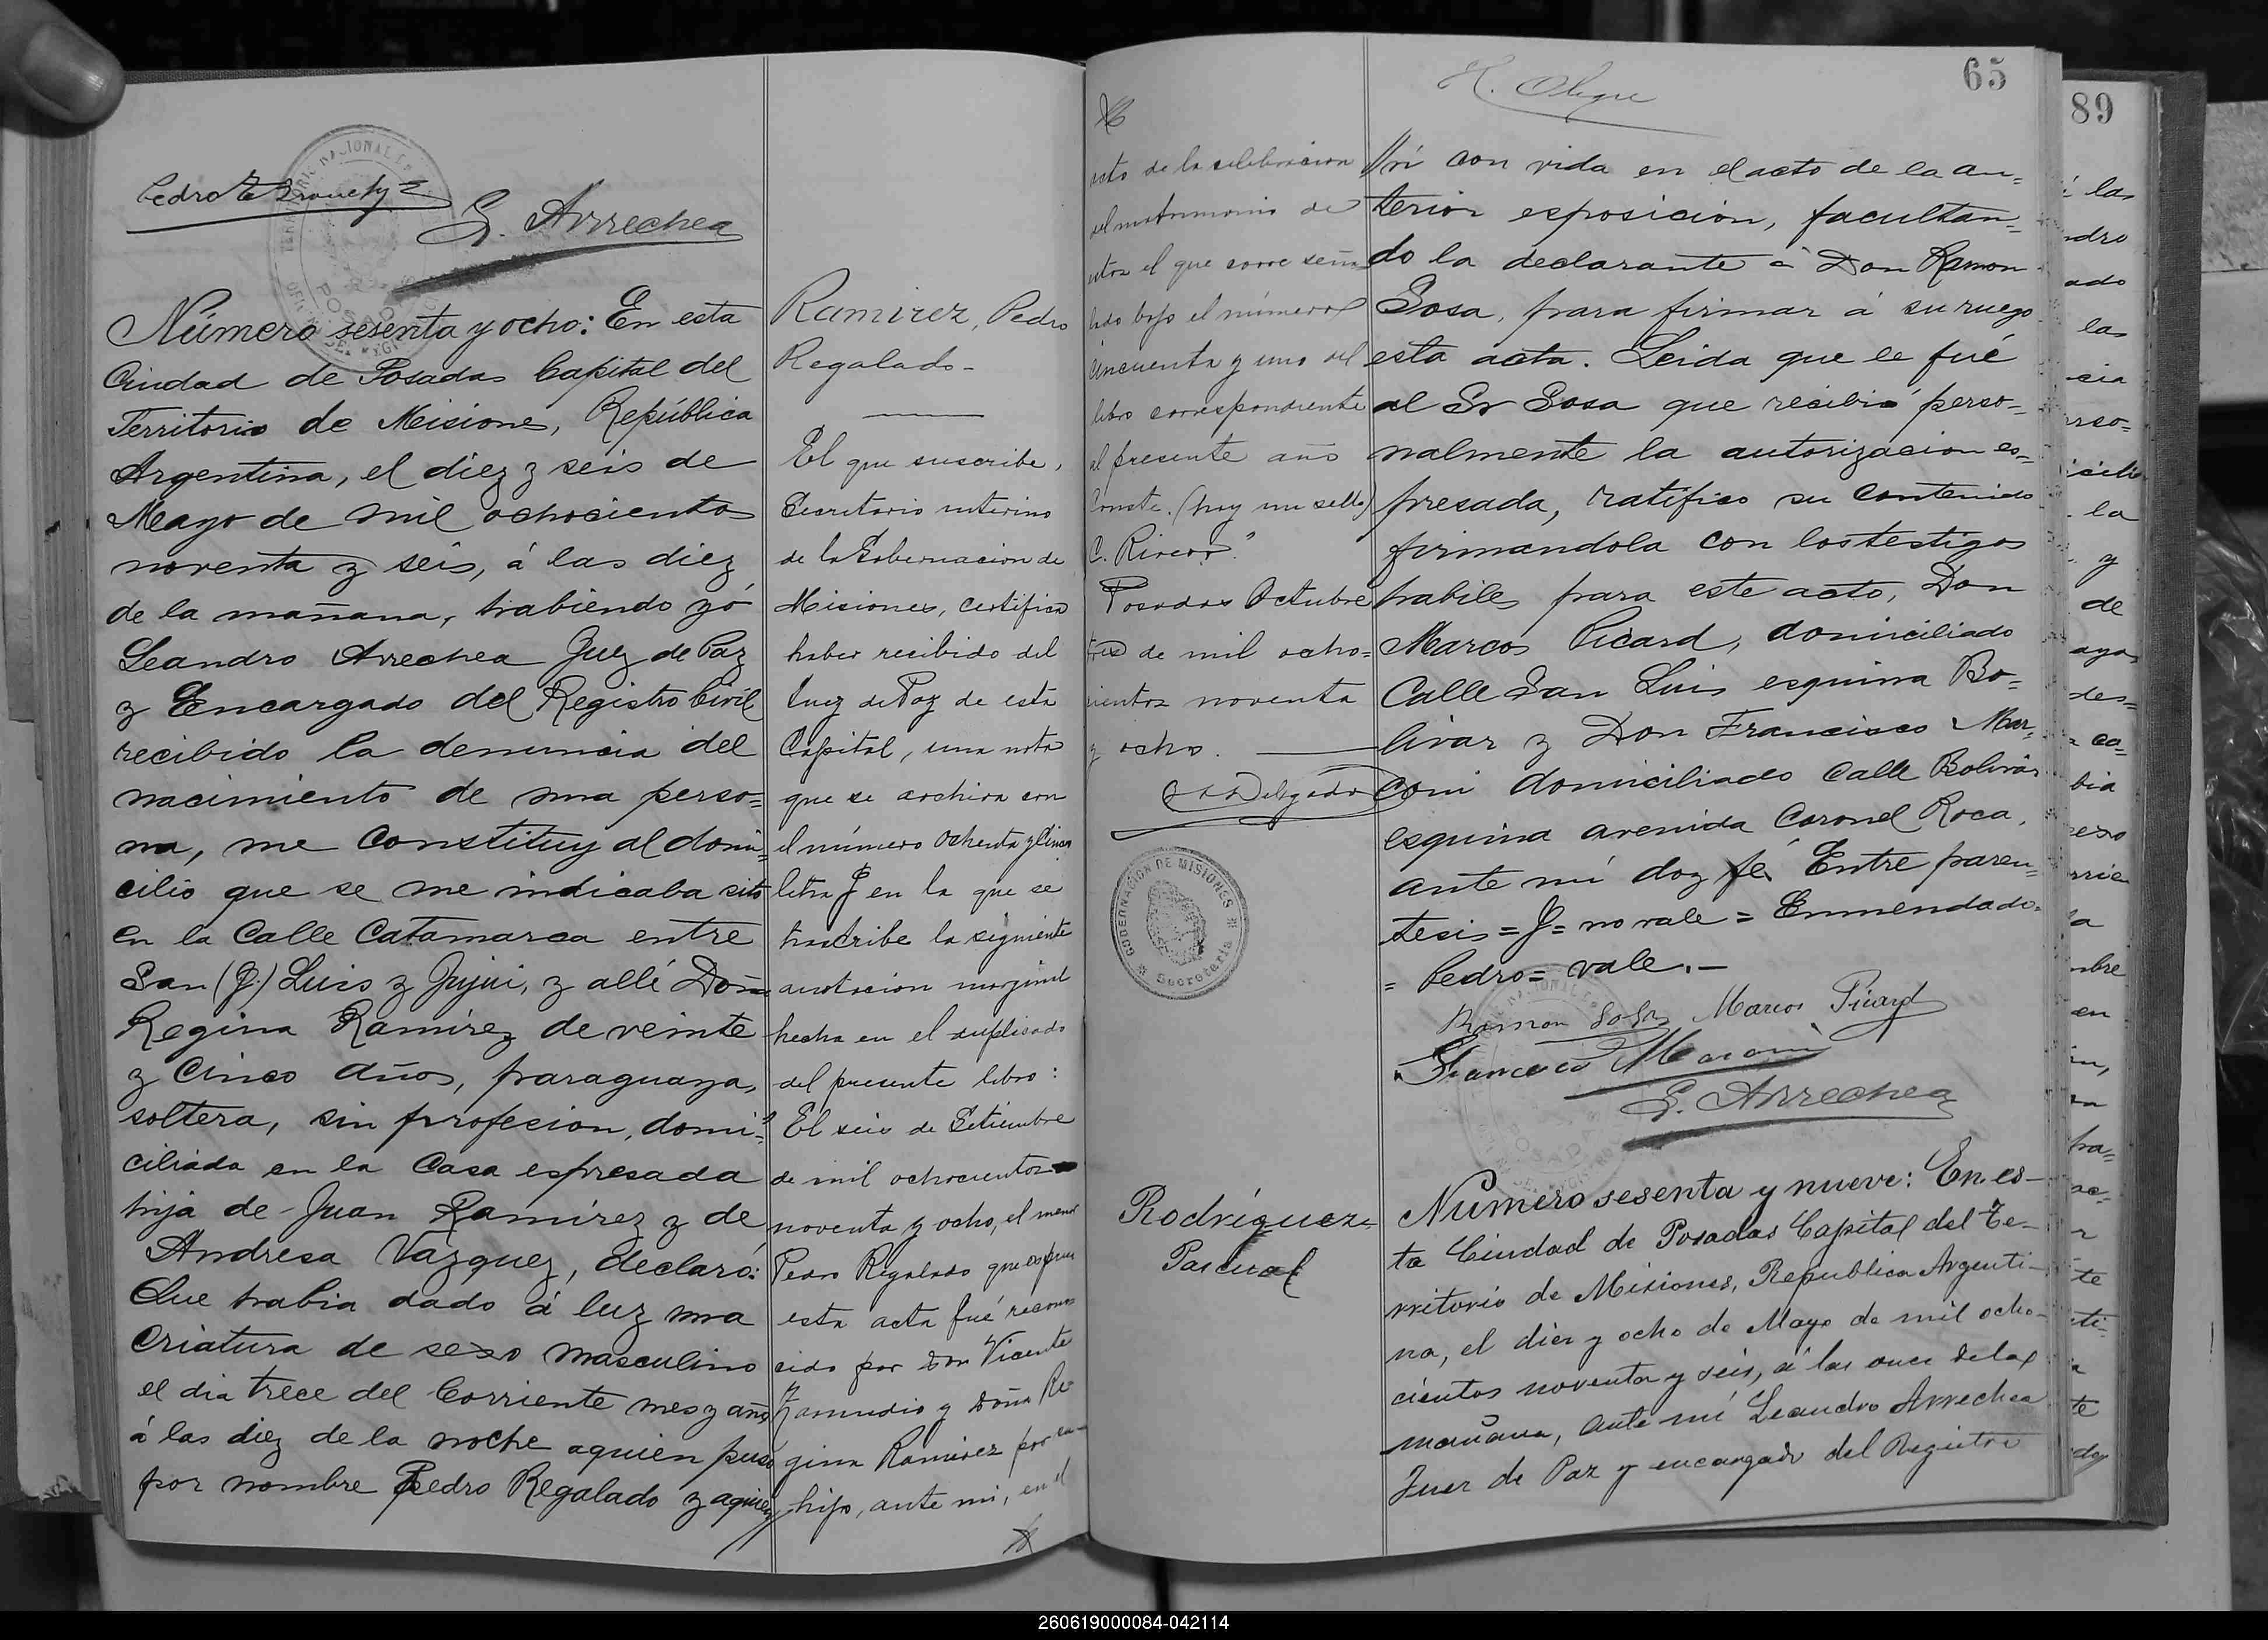 Pedro
L. Arrechea
Número sesenta y ocho: En esta
Ciudad de Posadas Capital del
Territorio de Misiones, República
Argentina, el diez y seis de
Mayo de mil ochocientos
noventa y seis, á las diez
de la mañana, habiendo yó
Leandro Arrechea Juez de Paz
y Encargado del Registro Civil
recibido la denuncia del
nacimiento de una perso=
na, me constituy al domi=
cilio que se me indicaba sito
en la Calle Catamarca entre
San (J.) Luis y Jujui, y allí Doña
Regina Ramírez de veinte
y Cinco años, paraguaya,
soltera, sin profesion, domi=
ciliada en la Casa espresada
hija de Juan Ramírez y de
Andresa Vazquez, declaró:
Que habia dado á luz una
Criatura de sexo masculino
el dia trece del Corriente mes y año
á las diez de la noche aquien puso
por nombre Pedro Regalado y aquien
Ramirez, Pedro
Regalado-
El que suscribe,
Secretario interino
de la Gobernacion de
Misiones, certifica
haber recibido del
Juez de Paz de esta
Capital, una nota
que se archiva con
el número ochenta y Cinco
letra J en la que se
trascribe la siguiente
anotacion marginal
hecha en el duplicado
del presente libro:
El seis de Setiembre
de mil ochocientos
noventa y ocho, el menor
Pedro Regalado que espresa
esta acta fué recono
cido por Don Vicente
Zamudio y Doña Re
gina Ramirez por su
hijo, ante mi, en el
acto de la celebracion
del matrimonio de
estos el que corre seña
lado bajo el número
cincuenta y uno del
libro correspondiente
al presente año
Conste. (hay un sello)
C. Rivero."
Posadas Octubre
tres de mil ocho=
cientos noventa
y ocho.
Delgado
GOBERNACIÓN DE MISIONES
Secretaria
Rodríguez=
Pascual
65
ví con vida en el acto de la an=
terior esposicion, facultan=
do la declarante á Don Ramon
Sosa, para firmar á su ruego
esta acta. Leida que le fué
al Sr Sosa que recibió perso=
nalmente la autorizacion es=
presada, ratifico su contenido
firmandola con los testigos
habiles para este acto, Don
Marcos Picard, domiciliado
Calle San Luis esquina Bo=
livar y Don Francisco Mar=
coni domiciliado Calle Bolivar
esquina avenida Coronel Roca,
ante mí doy fé Entre paren=
tesis = J = no vale = Enmendado
= Pedro = vale.-
Ramon Sosa Marcos Picard
Francisco Marconi
L. Arrechea
Número sesenta y nueve: En es-
ta Ciudad de Posadas Capital del Te-
rritorio de Misiones, Republica Argenti-
na, el diez y ocho de Mayo de mil ocho-
cientos noventa y seis, á las once de la
mañana, ante mí Leandro Arrechea
Juez de Paz y encargado del Registro
89
260619000084-042114